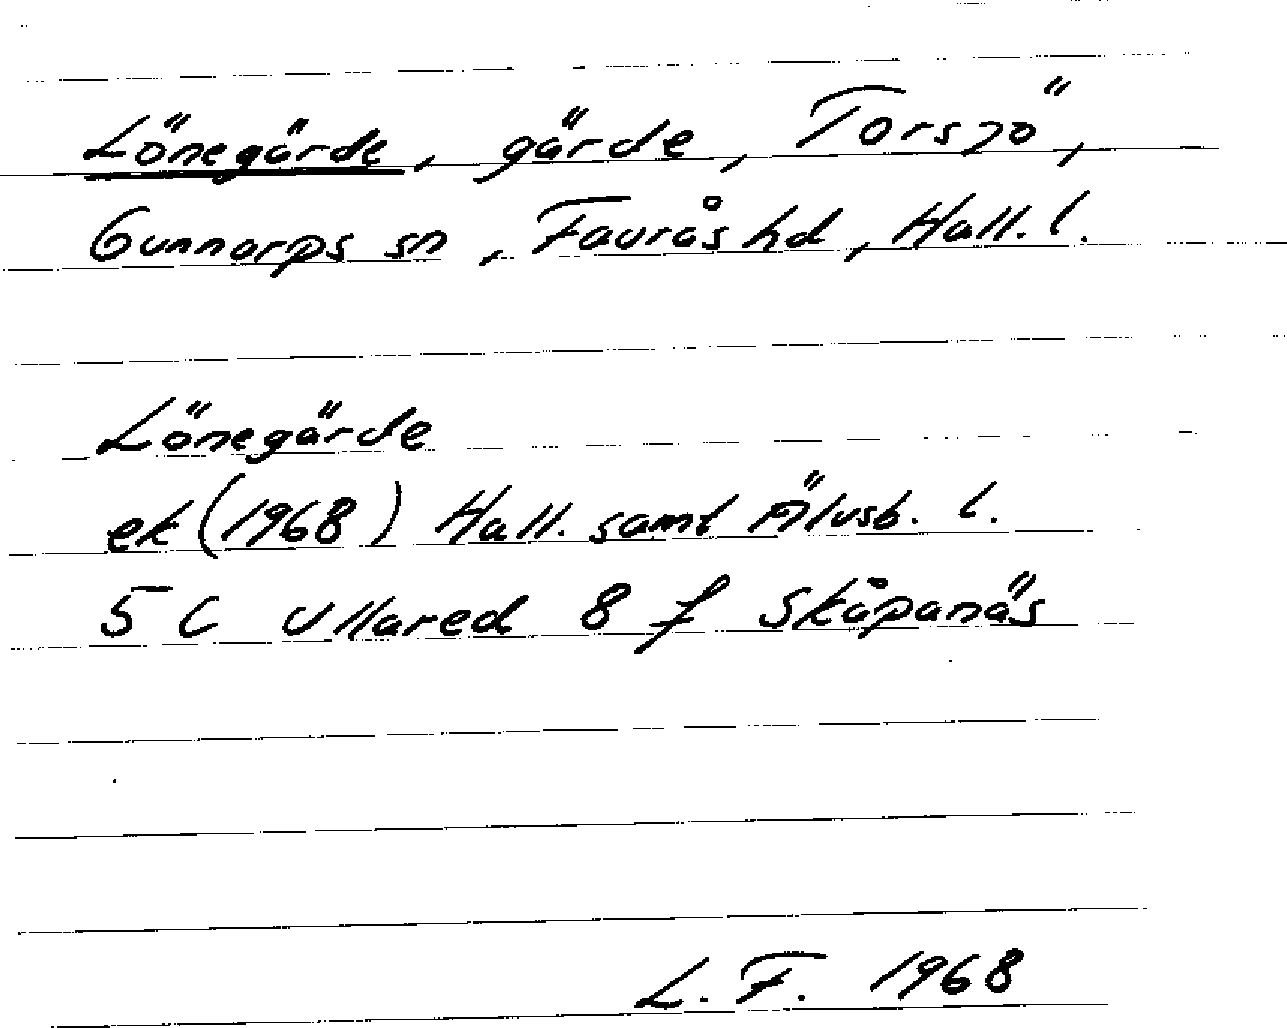 Lönegärde, gärde, Torsjö,
Gunnarps sn, Faurås hd, Hall. l.
Lönegärde
ek (1968) Hall. samt Älvsb. l.
5 C Ullared 8 f Skåpanäs
L. F. 1968